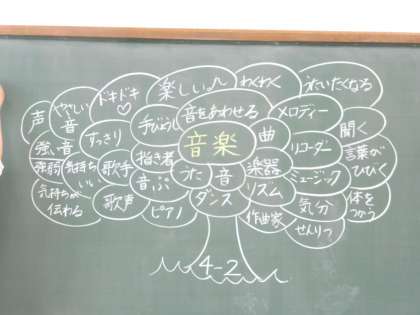 楽しい。
わくわく
うたいたくなる
ドキドキ
♡
やさしい
音
声
強い音
すっきり
手びょうし
音をあわせる
メロディー
音楽
曲
リコーダー
聞く
言葉が
ひびく
強弱
気持ち
いい
歌手
指き者
うた
音
楽器
ミュージック
音ぷ
ダンス
リズム
気持ちが
伝わる
歌声
ピアノ
作曲家
気分
体を
つかう
せんりつ
4-2